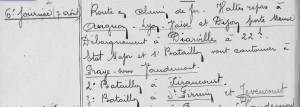 6e Journée 7 août Route en chemin de fer. Haltes repas à
Avignon - Lyon Vaise et Dijon porte Neuve
Débarquement à Diarville à 22h
Etat Major et 1er Bataillon vont cantonner à
Praye-sous-Vaudémont.
2e Bataillon à
3e Bataillon à St Firmin et